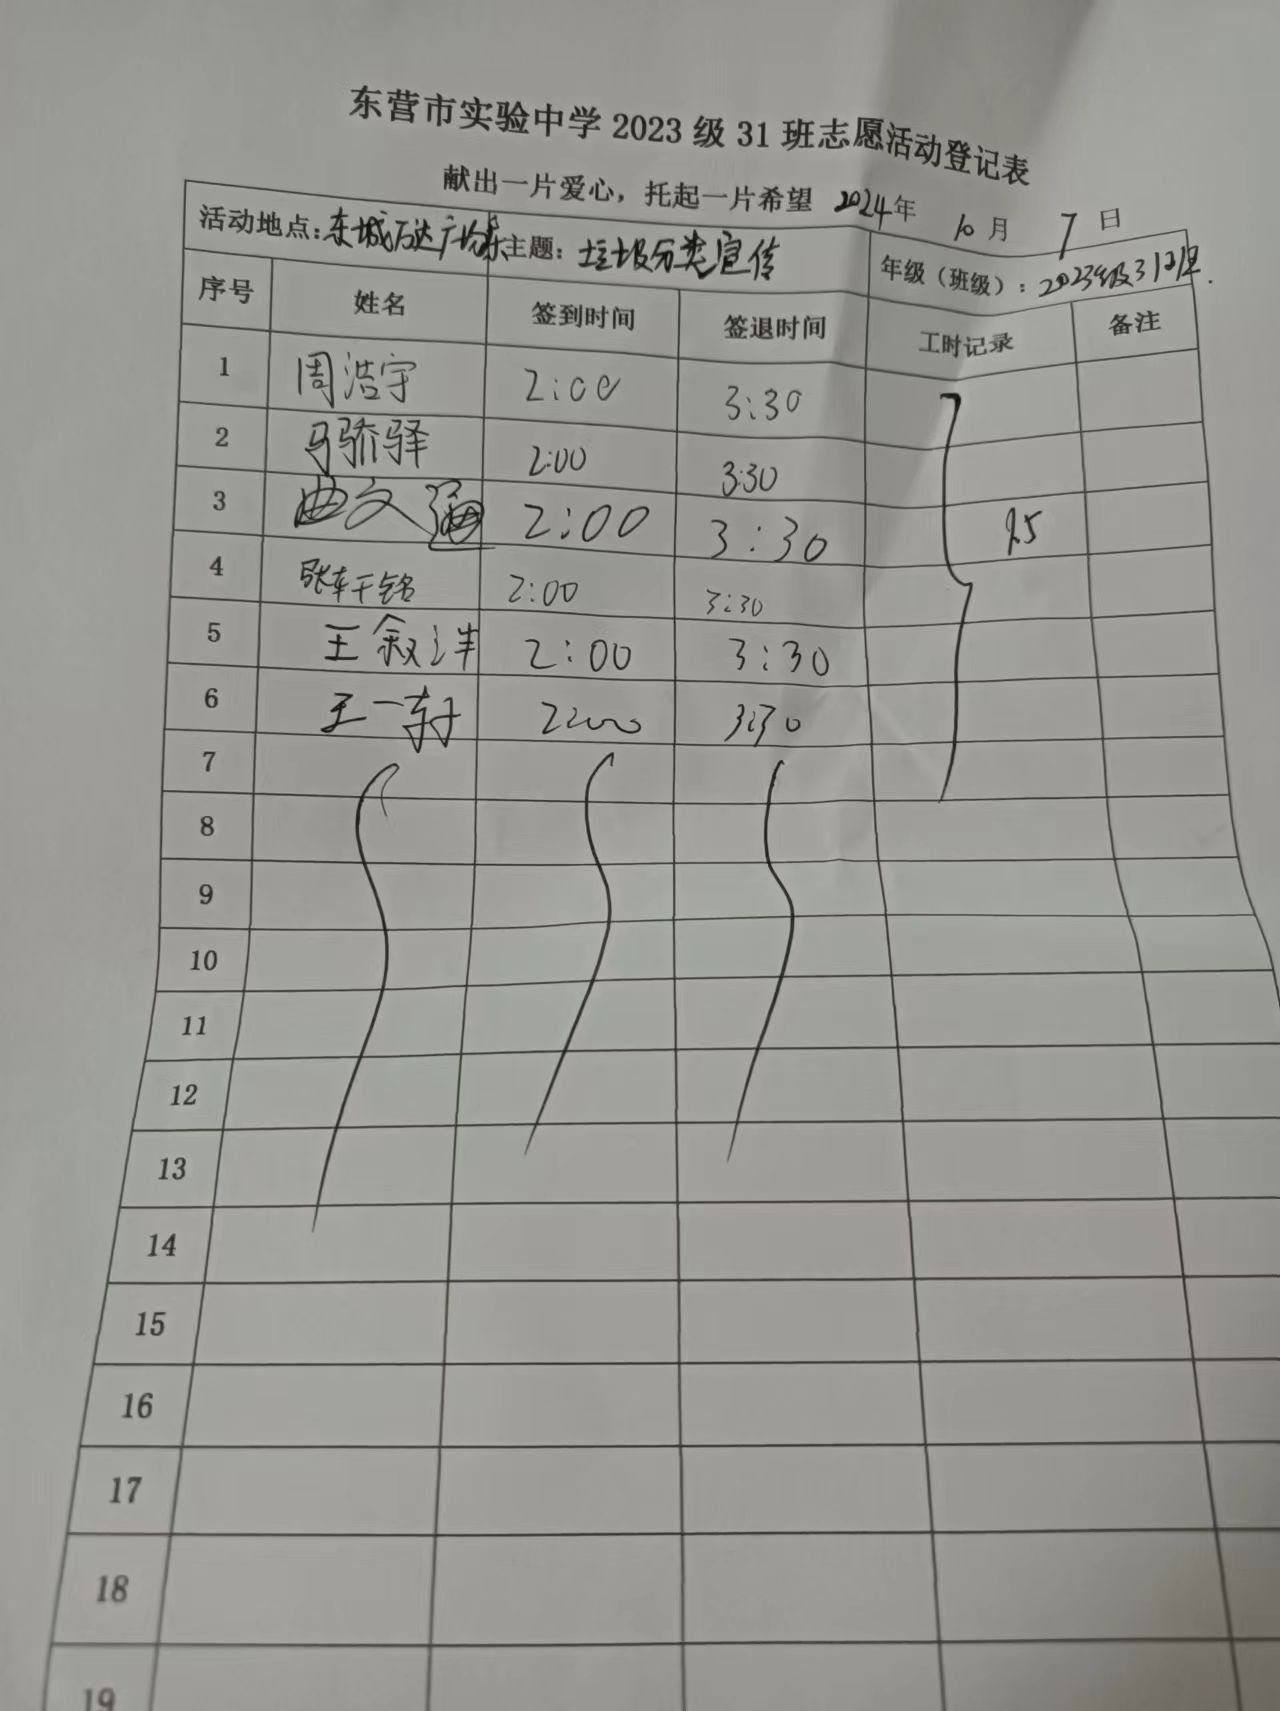 东营市实验中学 2023 级 31 班志愿活动登记表
献出一片爱心，托起一片希望 2024年 10月 7日
活动地点：东城万达广场东 主题：垃圾分类宣传 年级（班级）：2023级31班.
序号 姓名 签到时间 签退时间 工时记录 备注
1 周浩宇 2:00 3:30
2 马骄驿 2:00 3:30
3 曲文 2:00 3:30 1.5
4 张轩铭 2:00 3:30
5 王叙沣 2:00 3:30
6 王一轩 2:00 3:30
7
8
9
10
11
12
13
14
15
16
17
18
19